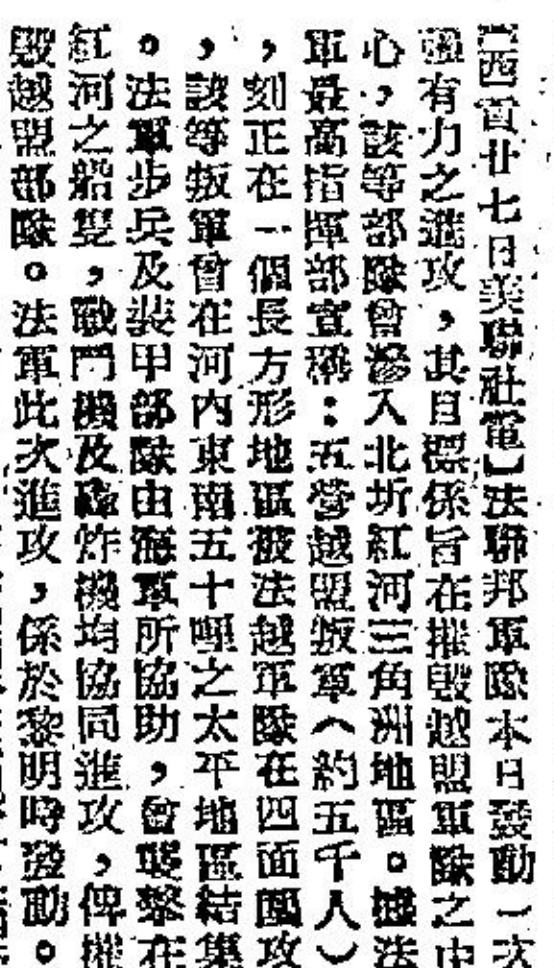 【西貢廿七日美聯社電】法聯邦軍隊本日發動一次
強有力之進攻，其目標係旨在摧毀越盟軍隊之中
心，該等部隊曾滲入北圻紅河三角洲地區。據法
軍最高指揮部宣稱：五營越盟叛軍（約五千人）
，刻正在一個長方形地區被法越軍隊在四面圍攻
，該等叛軍曾在河內東南五十哩之太平地區結集
。法軍步兵及裝甲部隊由海軍所協助，曾襲擊在
紅河之船隻，戰鬥機及轟炸機均協同進攻，俾摧
毀越盟部隊。法軍此次進攻，係於黎明時發動。